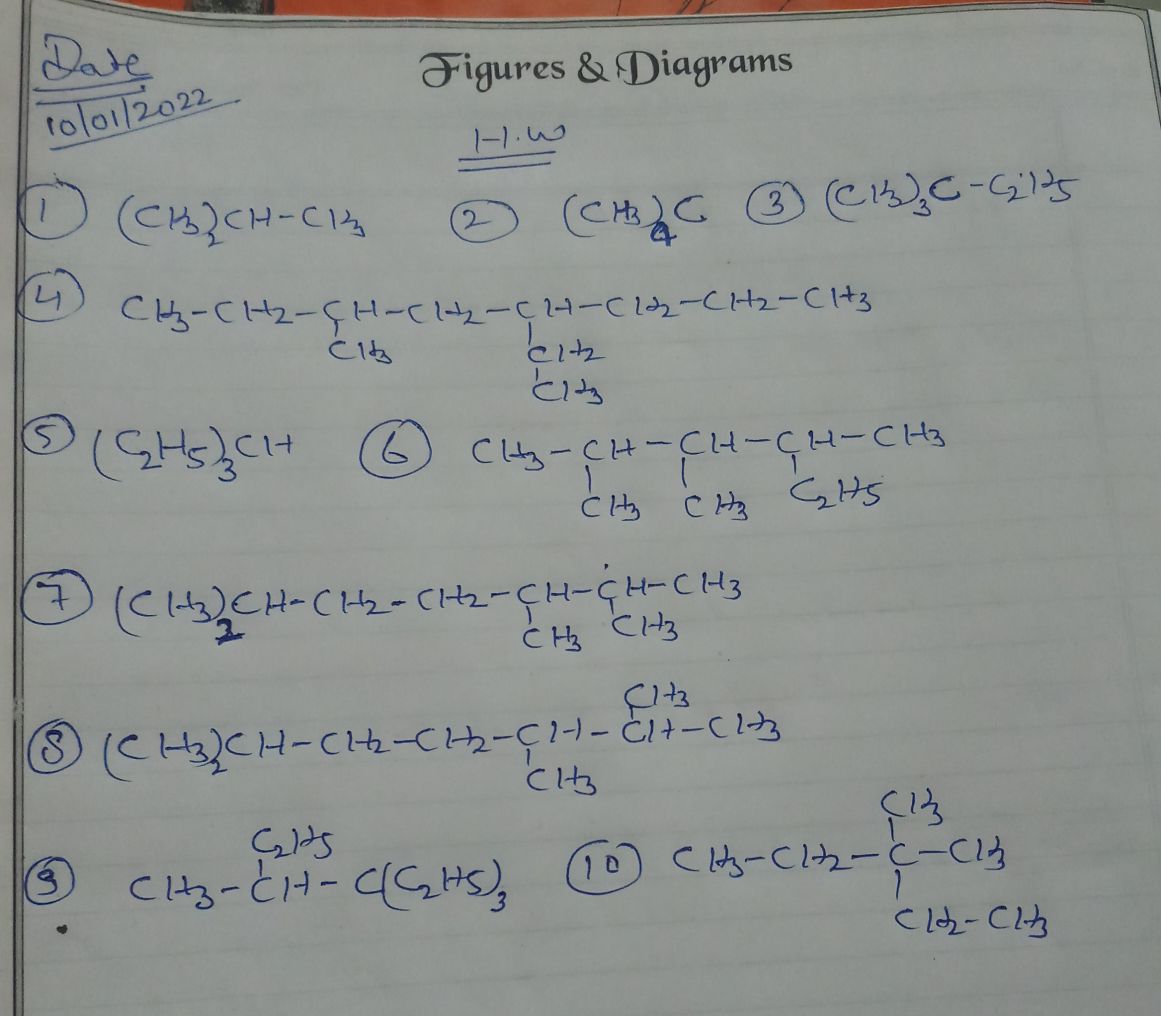 Date
10/01/2022
Figures & Diagrams
H.W
① (CH3)2CH-CH3 ② (CH3)4C ③ (CH3)3C-C2H5
④ CH3-CH2-CH-CH2-CH-CH2-CH2-CH3
CH3 CH2
CH3
⑤ (C2H5)3CH ⑥ CH3-CH-CH-CH-CH3
CH3 CH3 C2H5
⑦ (CH3)2CH-CH2-CH2-CH-CH-CH3
CH3 CH3
CH3
⑧ (CH3)2CH-CH2-CH2-CH-CH-CH3
CH3
C2H5 CH3
⑨ CH3-CH-C(C2H5)3 ⑩ CH3-CH2-C-CH3
CH2-CH3